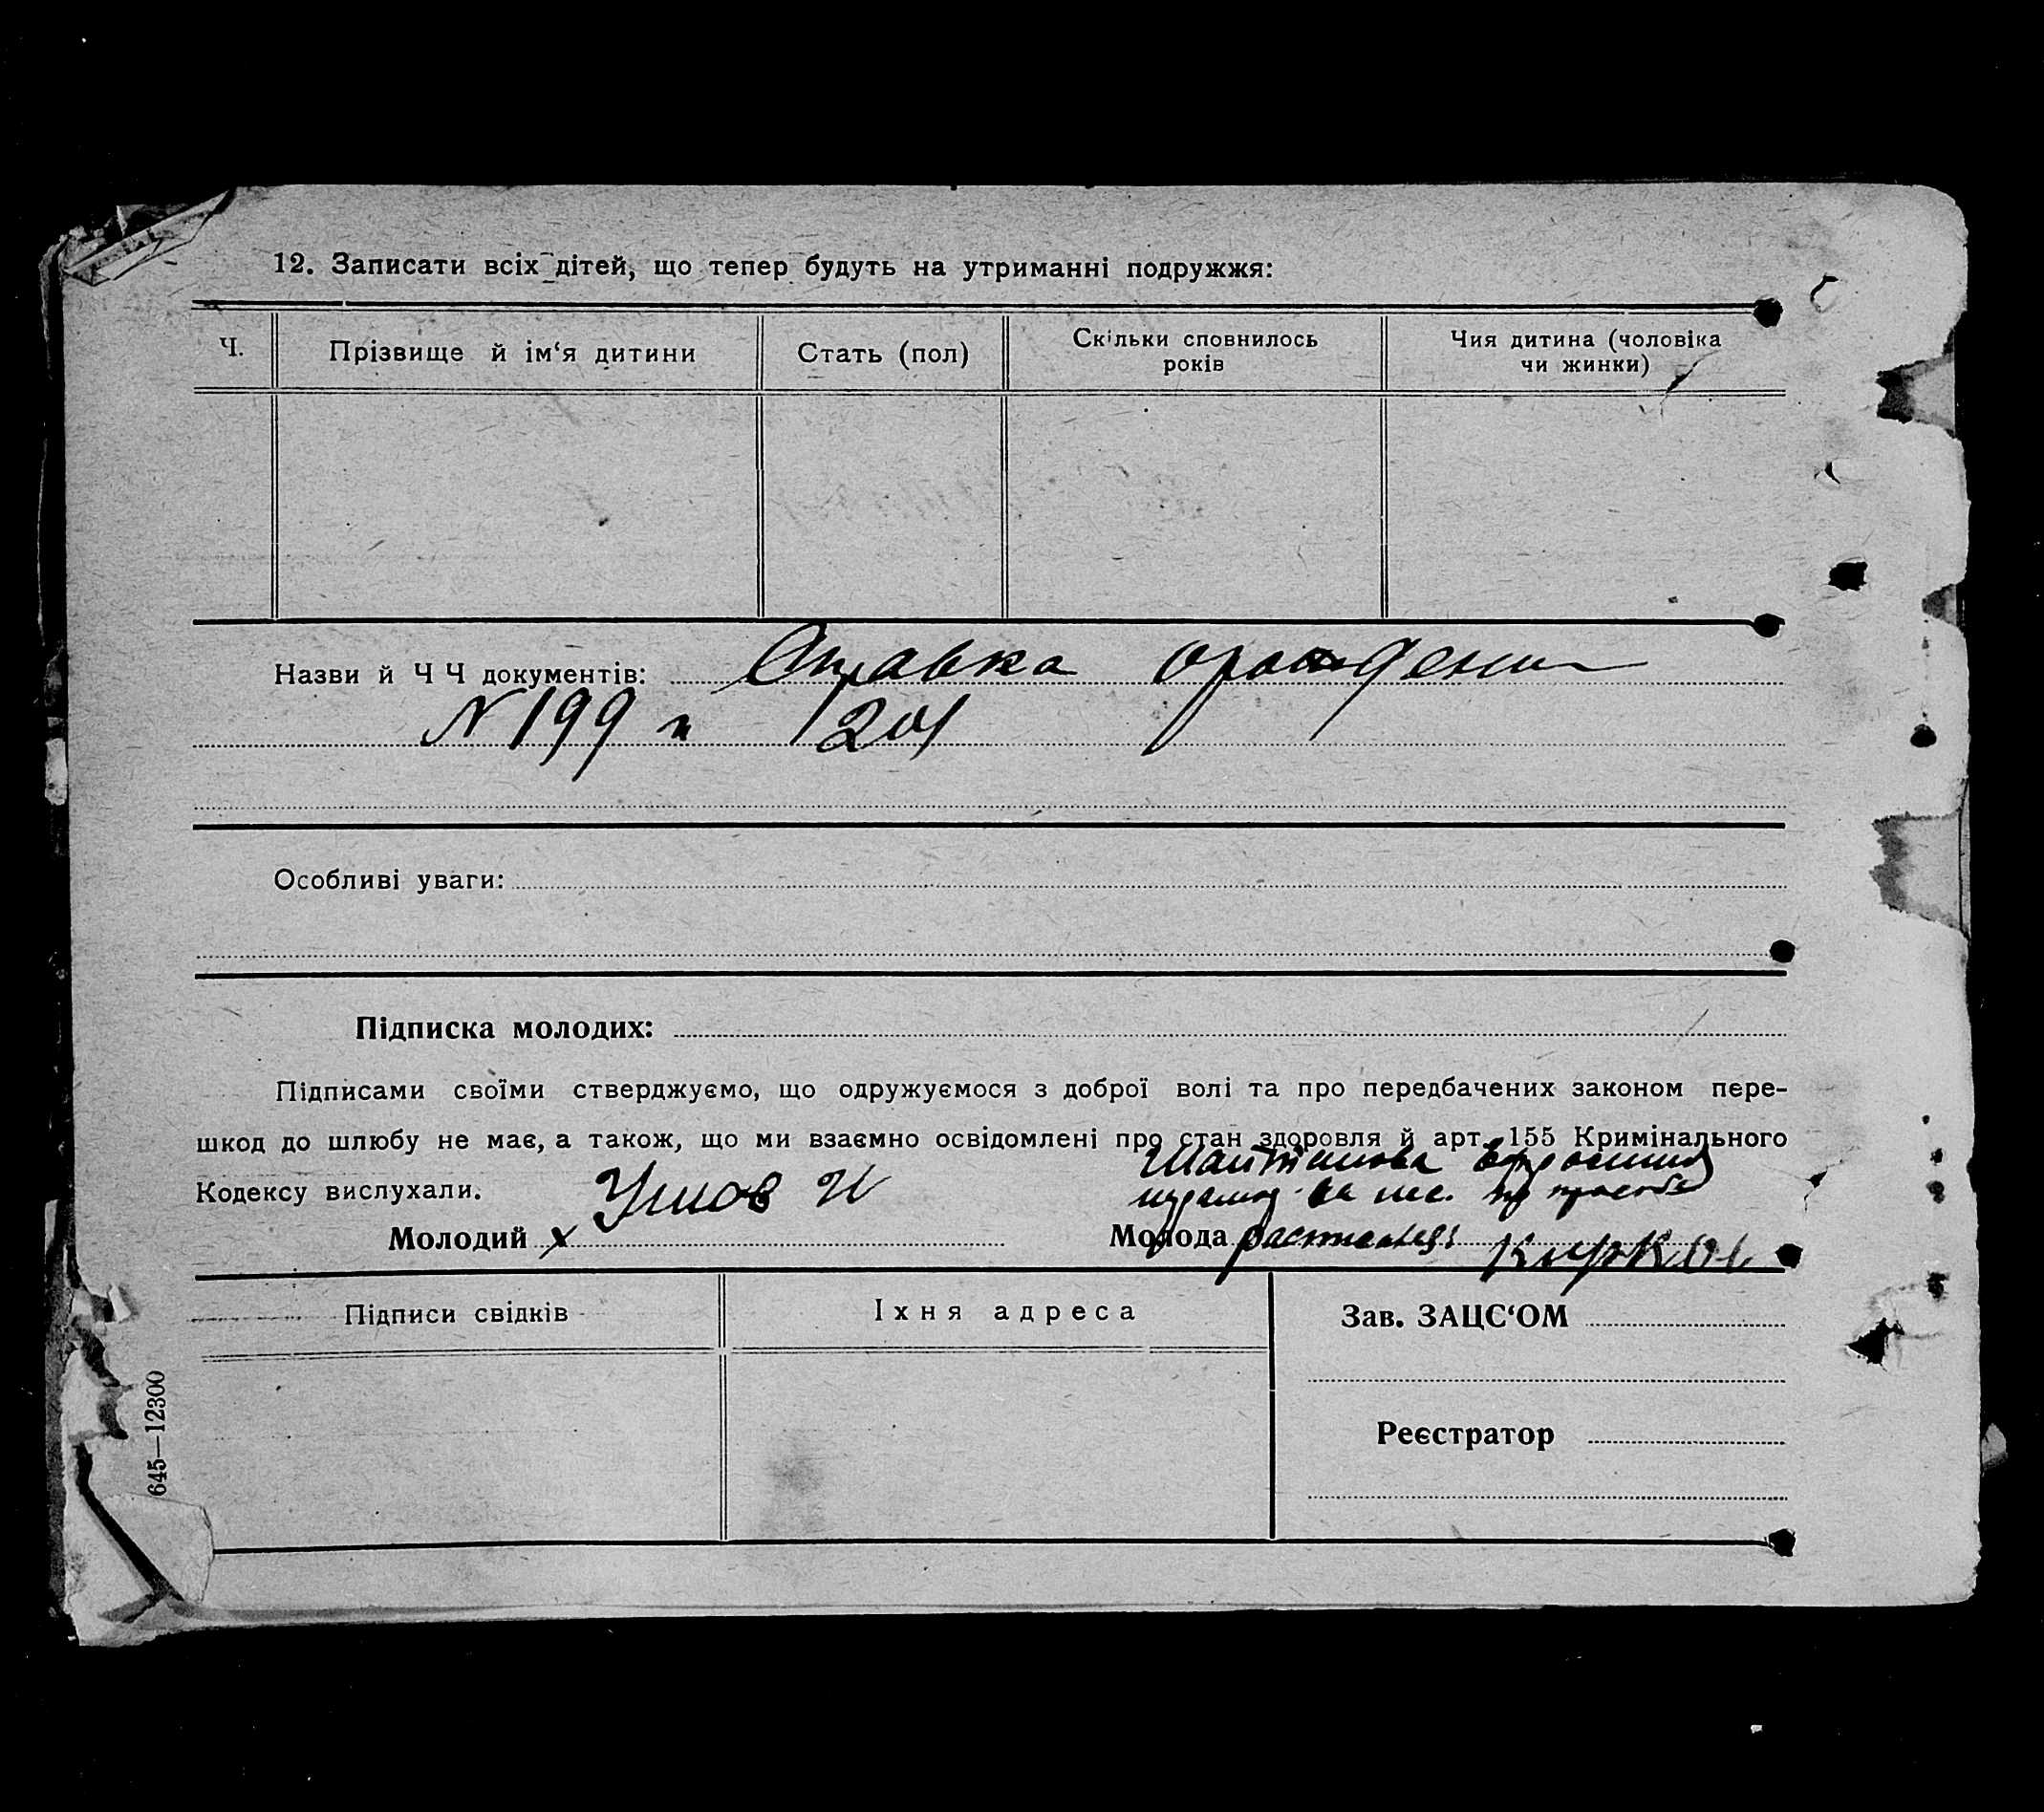 12. Записати всіх дітей, що тепер будуть на утриманні подружжя:
Ч.
Прізвище й ім‘я дитини
Стать (пол)
Скільки сповнилось
років
Чия дитина (чоловіка
чи жинки)
Назви й Ч Ч документів: Справка орождении
N 199 и 201
Особливі уваги:
Підписка молодих:
Підписами своїми стверджуємо, що одружуємося з доброї волі та про передбачених законом пере-
шкод до шлюбу не має, а також, що ми взаємно освідомлені про стан здоровля й арт. 155 Кримінального
Кодексу вислухали.
Молодий х
Молода
Підписи свідків
Іхня адреса
Зав. ЗАЦС‘ОМ
Реєстратор
645—12300